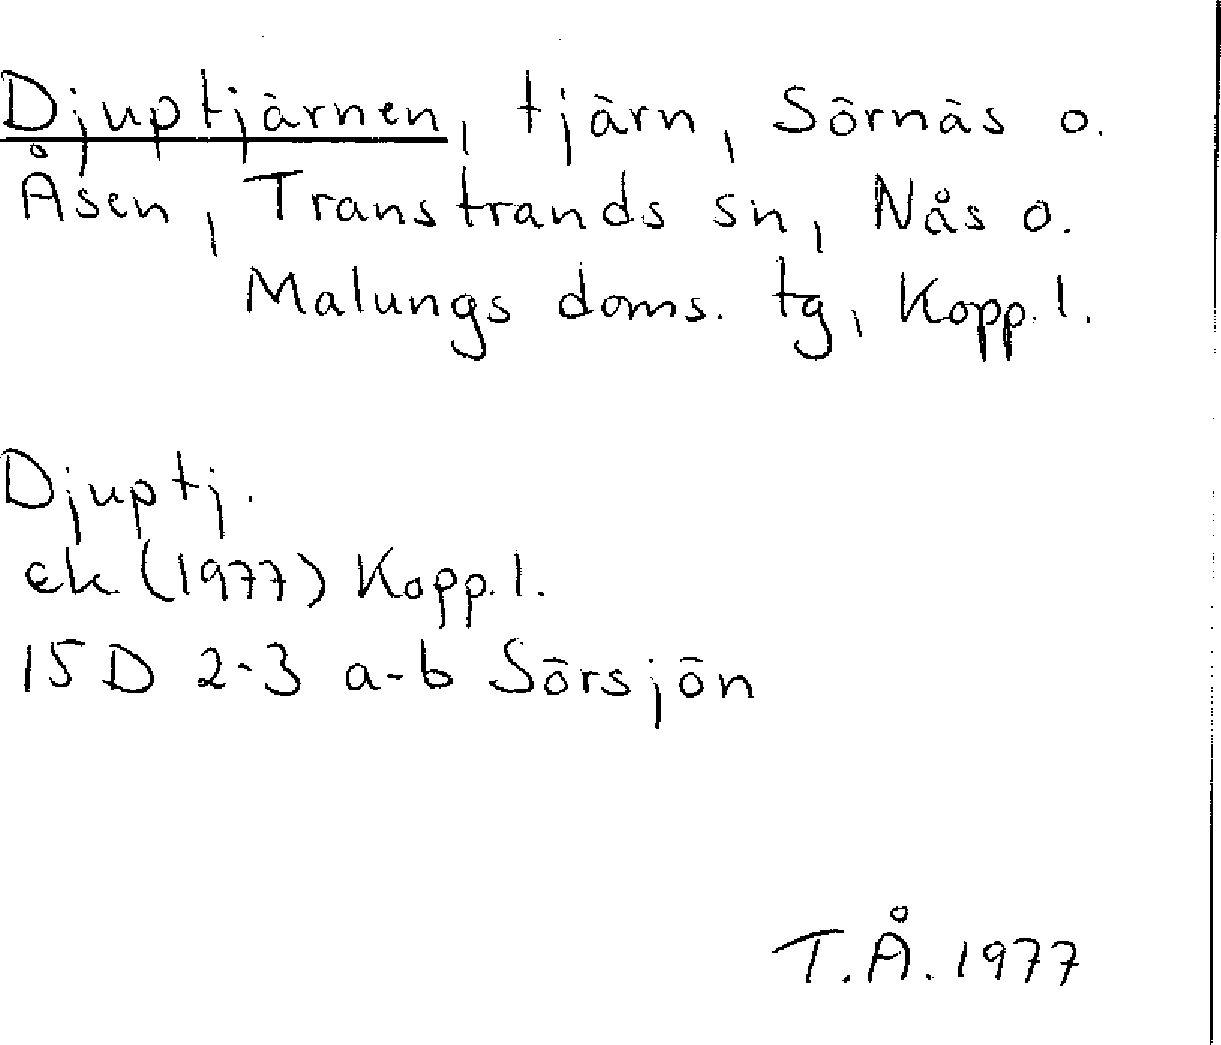 Djuptjärnen, tjärn, Sörnäs o.
Åsen, Transtrands sn, Nås o.
Malungs doms. tg, Kopp. l.
Djuptj.
ek (1977) Kopp. l.
15 D 2-3 a-b Sörsjön
T.Å. 1977